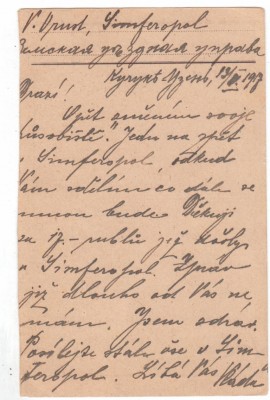 V. Vrut, Simferopol
Земская уездная управа
13/III 1917
Drazí!
Opět měním svoje
působiště. Jedu na zpět
v Simferopol, odkud
Vám sdělím co dále se
mnou bude. Děkuji
za 17.- rublů již došly
v Simferopol. Zpráv
již dlouho od Vás ne
mám. Jsem zdráv.
Posílejte stále vše v Sim
feropol. Líbá Vás Ráďa